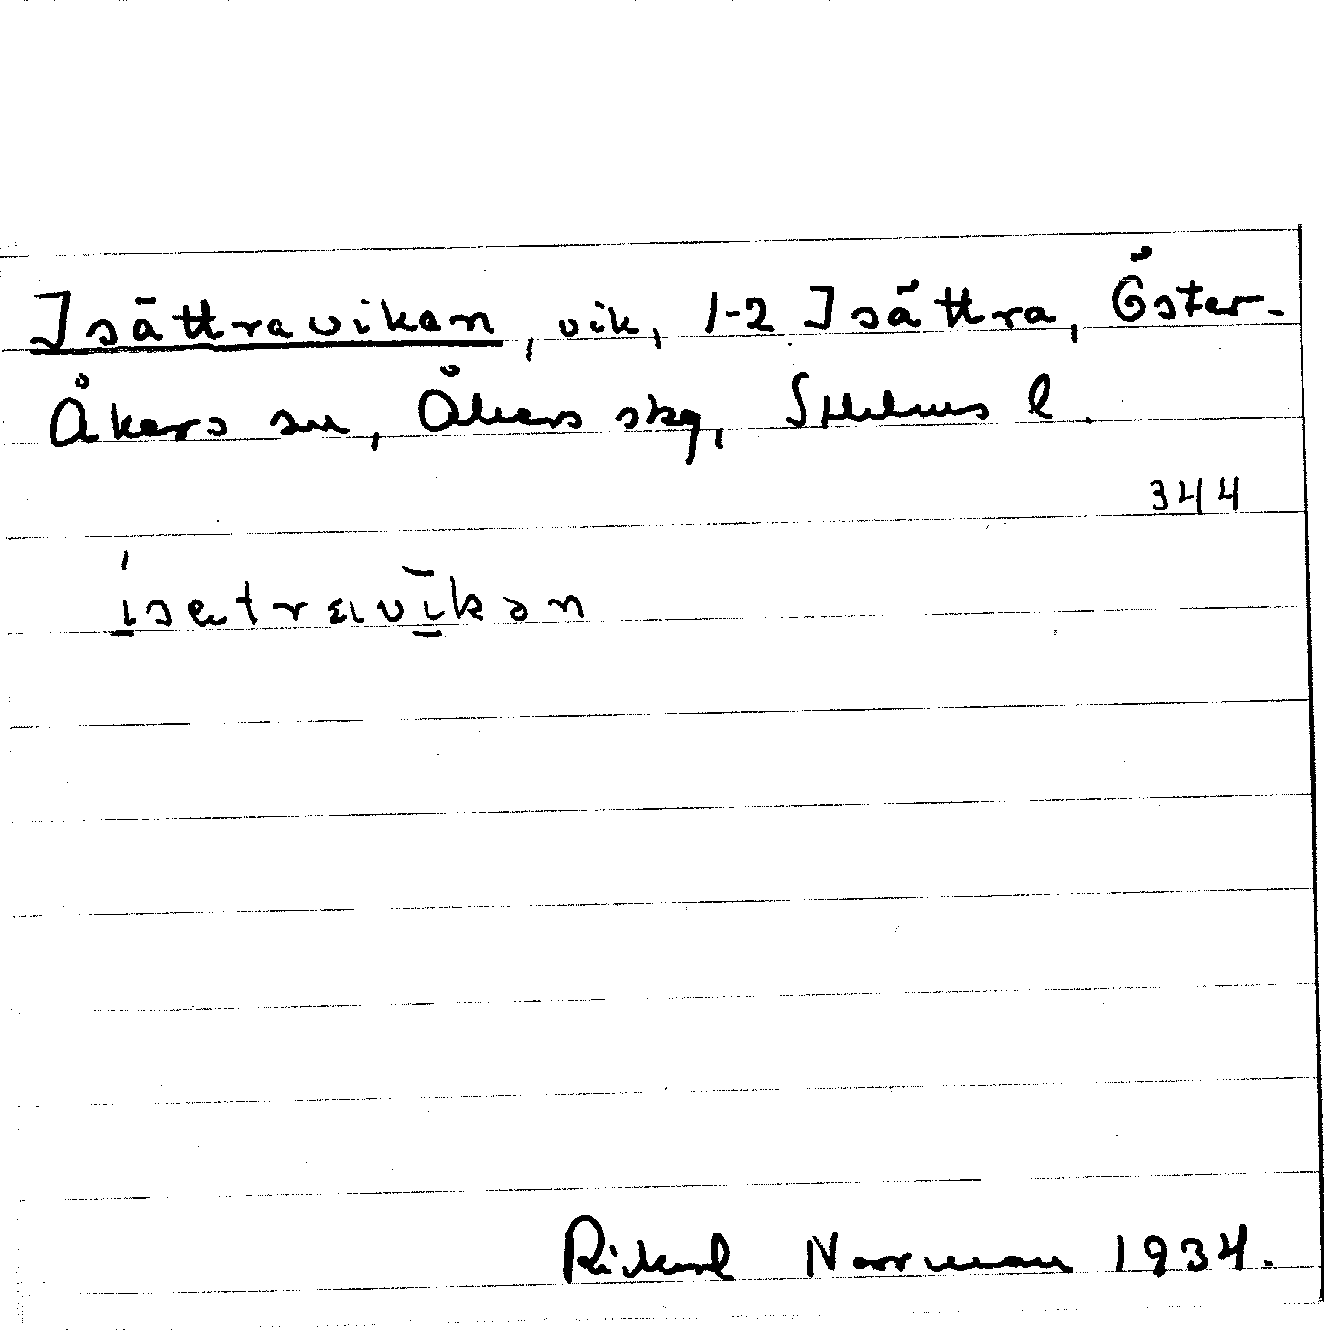 Isättravikan, vik, 1-2 Isättra, Öster-
Åkers sn, Åkers skg, Sthlms l.
344
isetravikan
Rickard Norrman 1934.